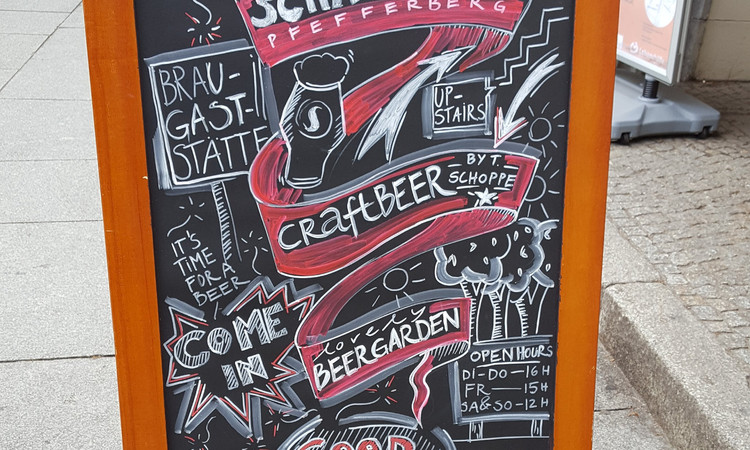 PFEFFERBERG
BRAU-
GAST-
STÄTTE
UP-
STAIRS
CRAFTBEER
BY T.
SCHOPPE
IT'S
TIME
FOR A
BEER
COME
IN
lovely
BEERGARDEN
OPEN HOURS
DI-DO-16H
FR-15H
SA&SO-12H